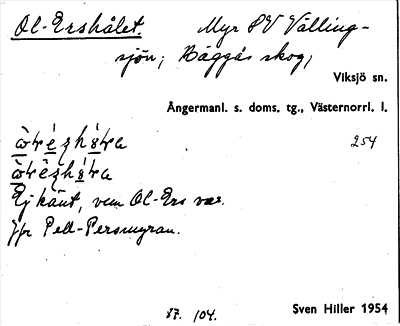 Ol-Ershålet. Myr SV Välling-
sjön; Bäggås skog,
Viksjö sn.
Ångermanl. s. doms. tg., Västernorrl. l.
254
Ej känt, vem Ol-Ers var.
Jfr Pell-Persmyran.
87. 104. Sven Hiller 1954